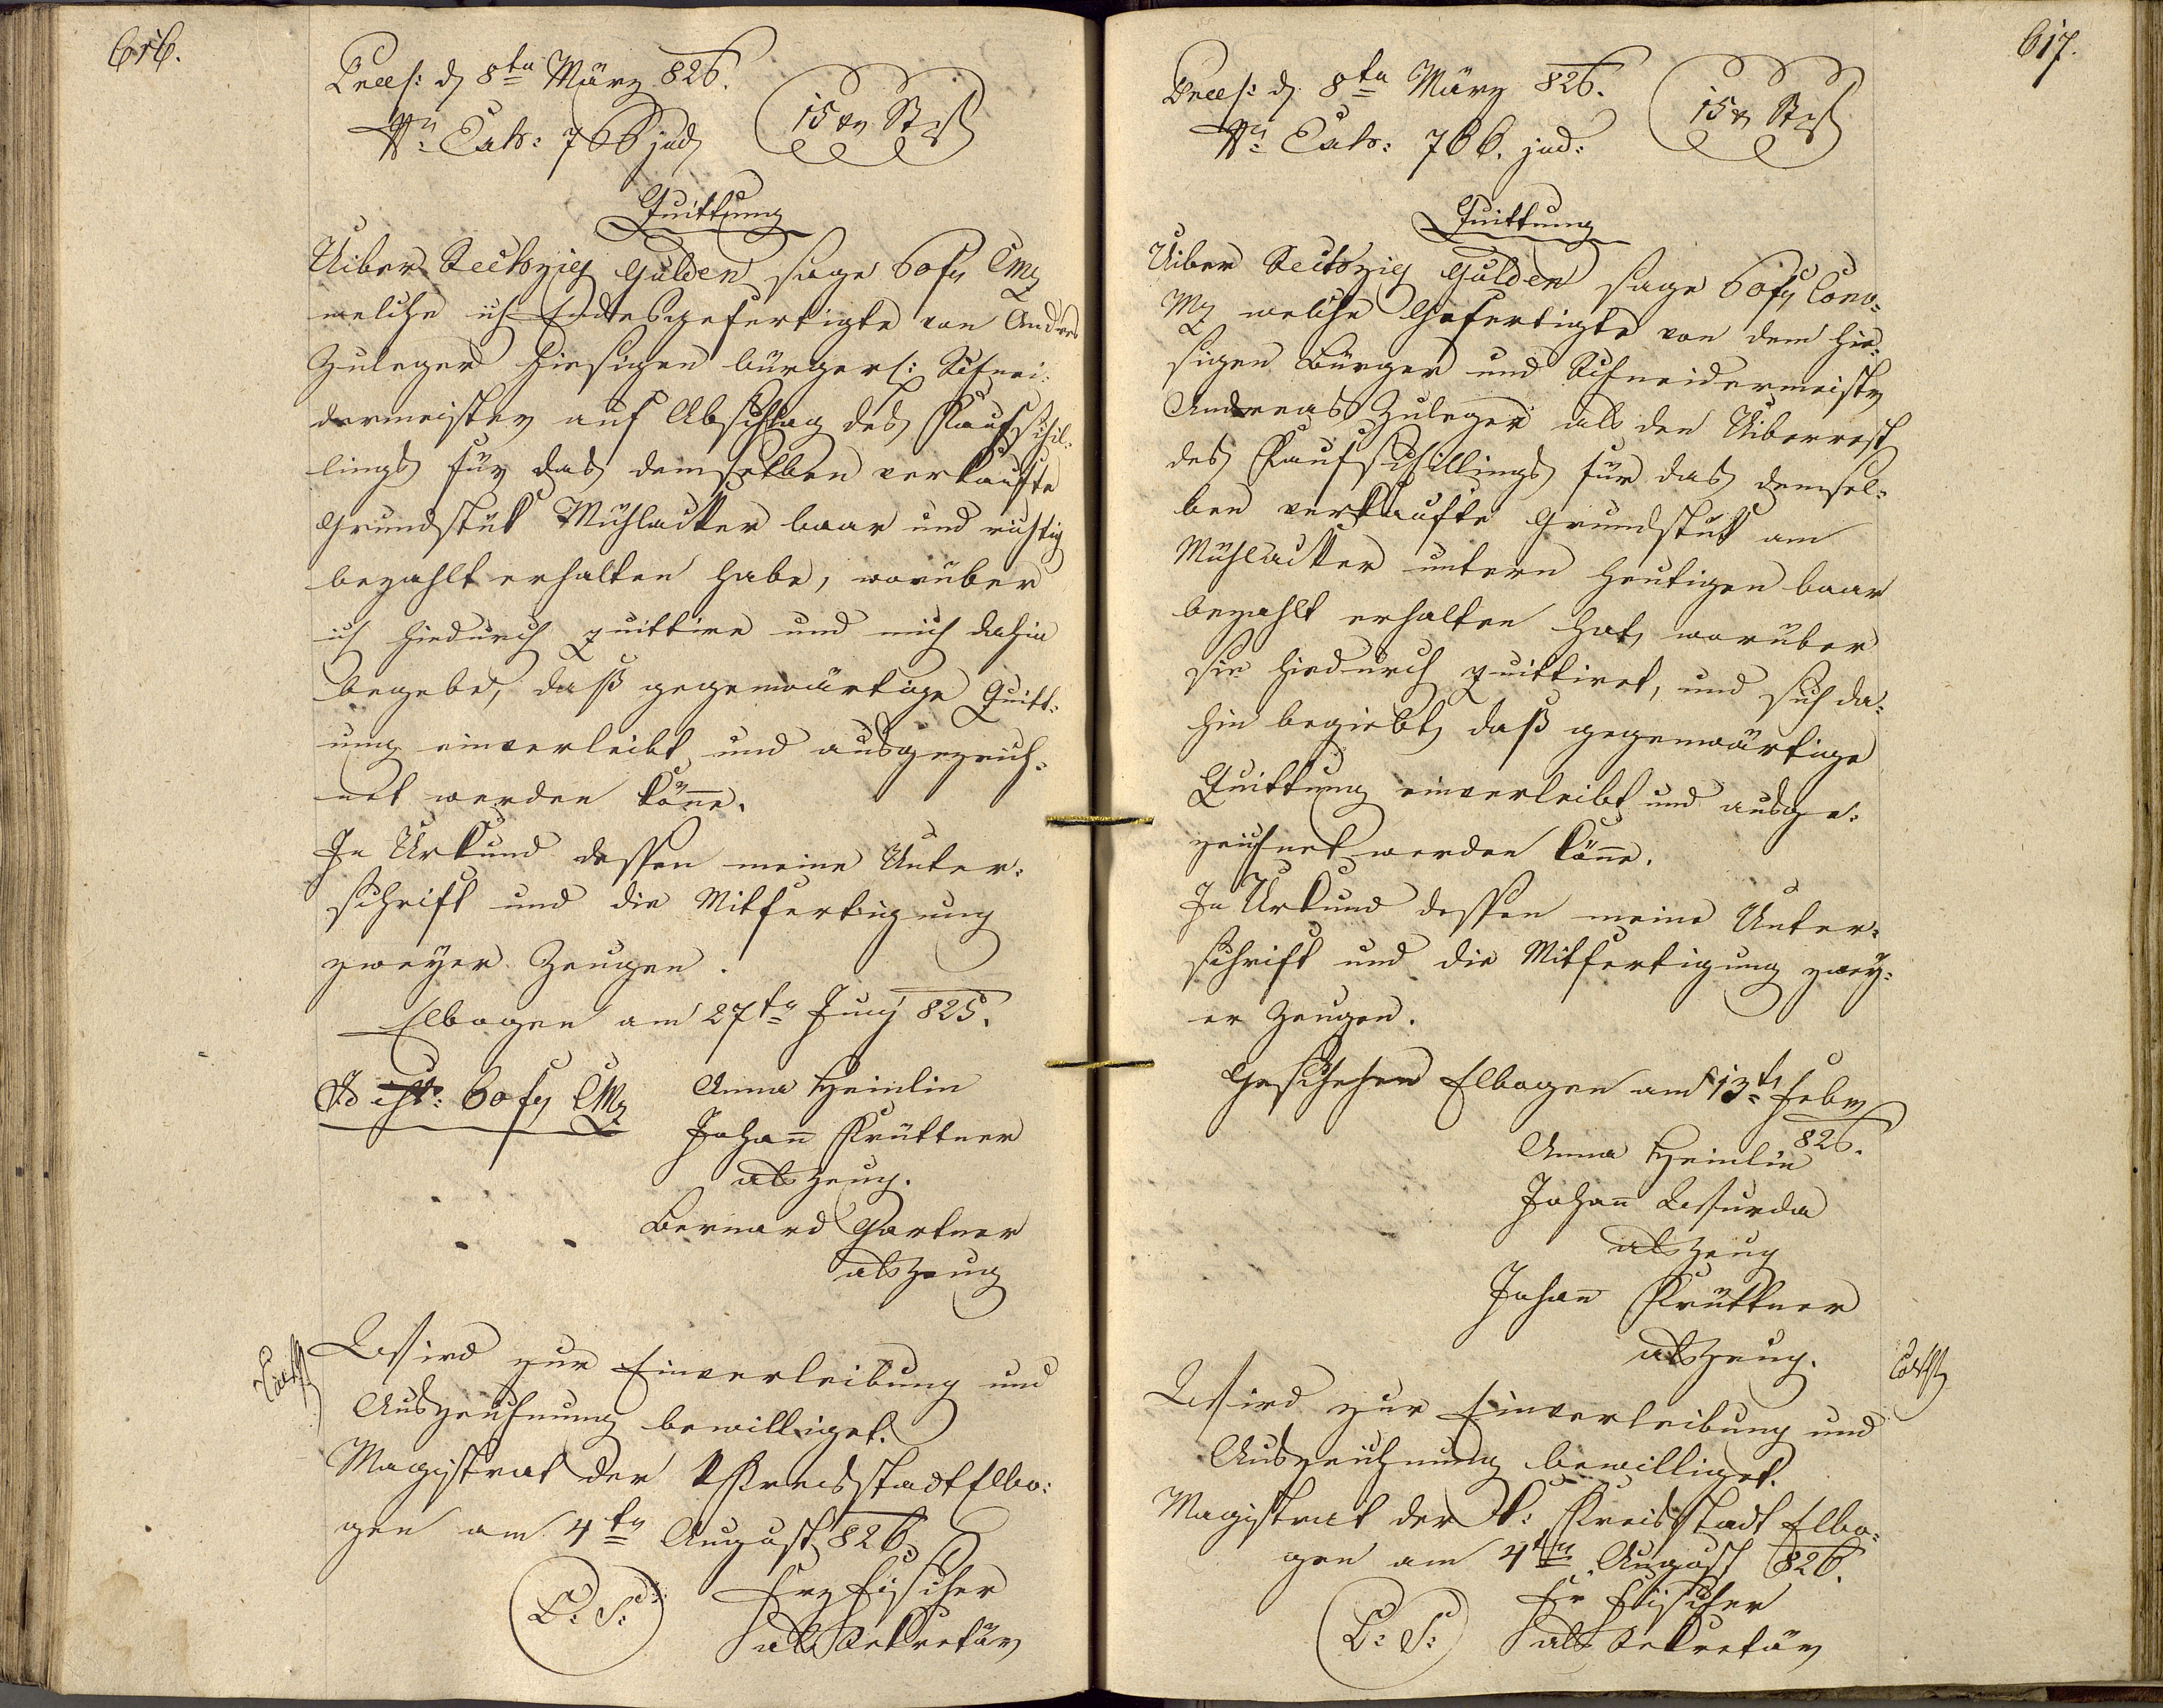 616.
Præs: d 8ten März 826.
Nro Exh: 766 jud
15 xr Stpl
Quittung
Uiber Sechzig Gulden sage 60 fl CMz
welche ich Endesgefertigte von Andres
Zuleger hiesigen bürgerl: Schnei-
dermeister auf Abschlag des Kaufschil-
lings für das demselben verkaufte
Grundstük Mühlacker baar und richtig
bezahlt erhalten habe, worüber
ich hiedurch quittire und mich dahin
begebe, daß gegenwärtige Quitt-
ung einverleibt und ausgezeich-
net werden könne.
In Urkund dessen meine Unter-
schrift und die Mitfertigung
zweyer Zeugen.
Elbogen am 27ten Juny 825.
60 fl CMz
Anna Heinlin
Johann Krüttner
als Zeug.
Bernard Gartner
als Zeug
Wird zur Einverleibung und
Auszeichnung bewilliget.
Magistrat der k Kreisstadt Elbo-
gen am 4ten August 826.
L: S:
Frz Fischer
als Sekretär
617.
Præs: d. 8ten März 826.
Nro Exh: 766. jud:
15 xr Stpl
Quittung
Uiber Sechzig Gulden sage 60 fl Conv-
Mz welche Gefertigte von dem hie-
sigen Bürger und Schneidermeister
Andreas Zuleger als den Uiberrest
des Kaufschillings für das demsel-
ben verkaufte Grundstük am
Mühlacker untern heutigen baar
bezahlt erhalten hat, worüber
sie hiedurch quittiret, und sich da-
hin begiebt, daß gegenwärtige
Quittung einverleibt und ausge-
zeichnet werden könne.
In Urkund dessen meine Unter-
schrift und die Mitfertigung zwey-
er Zeugen.
Geschehen Elbogen am 13ten Febr
826.
Anna Heinlin
Johann Wurda
als Zeug
Johann Krüttner
als Zeug.
Wird zur Einverleibung und
Auszeichnung bewilliget.
Magistrat der k: Kreisstadt Elbo-
gen am 4ten August 826.
L: S:
Fr Fischer
als Sekretär